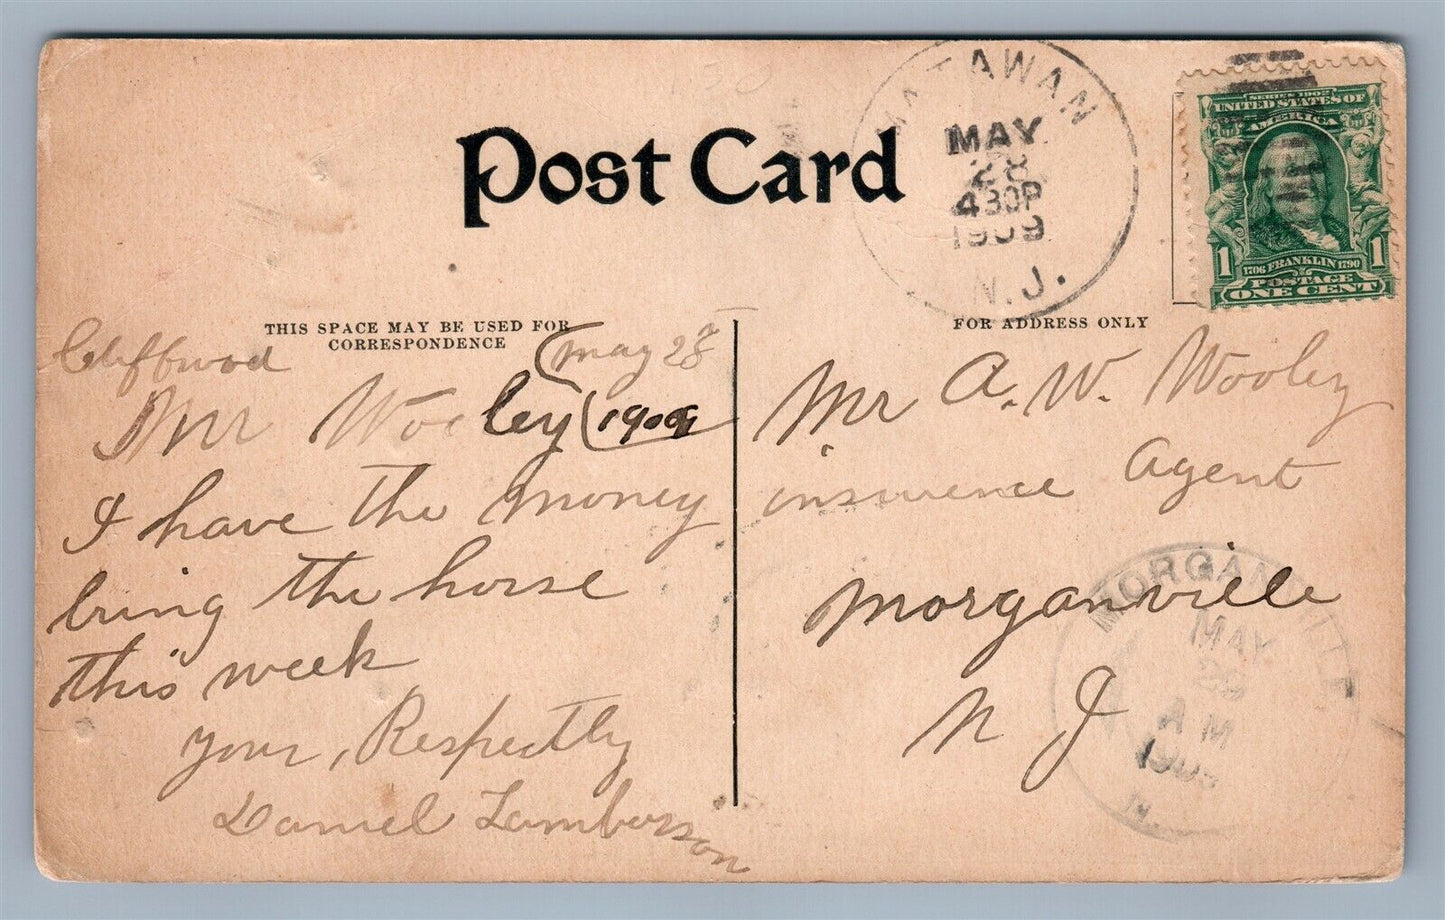 Post Card
MATAWAN
MAY
28
430P
1909
N.J.
SERIES 1902
UNITED STATES OF
AMERICA
1 1
1706 FRANKLIN 1790
POSTAGE
ONE CENT
THIS SPACE MAY BE USED FOR
CORRESPONDENCE
Cliffwood (May 28
Mr Wooley (1909
I have the money
bring the horse
this week
your, Respectly
Daniel Lamberson
FOR ADDRESS ONLY
Mr A. W. Wooley
insurence Agent
Morganville
N J
MORGANVILLE
MAY
29
AM
N.